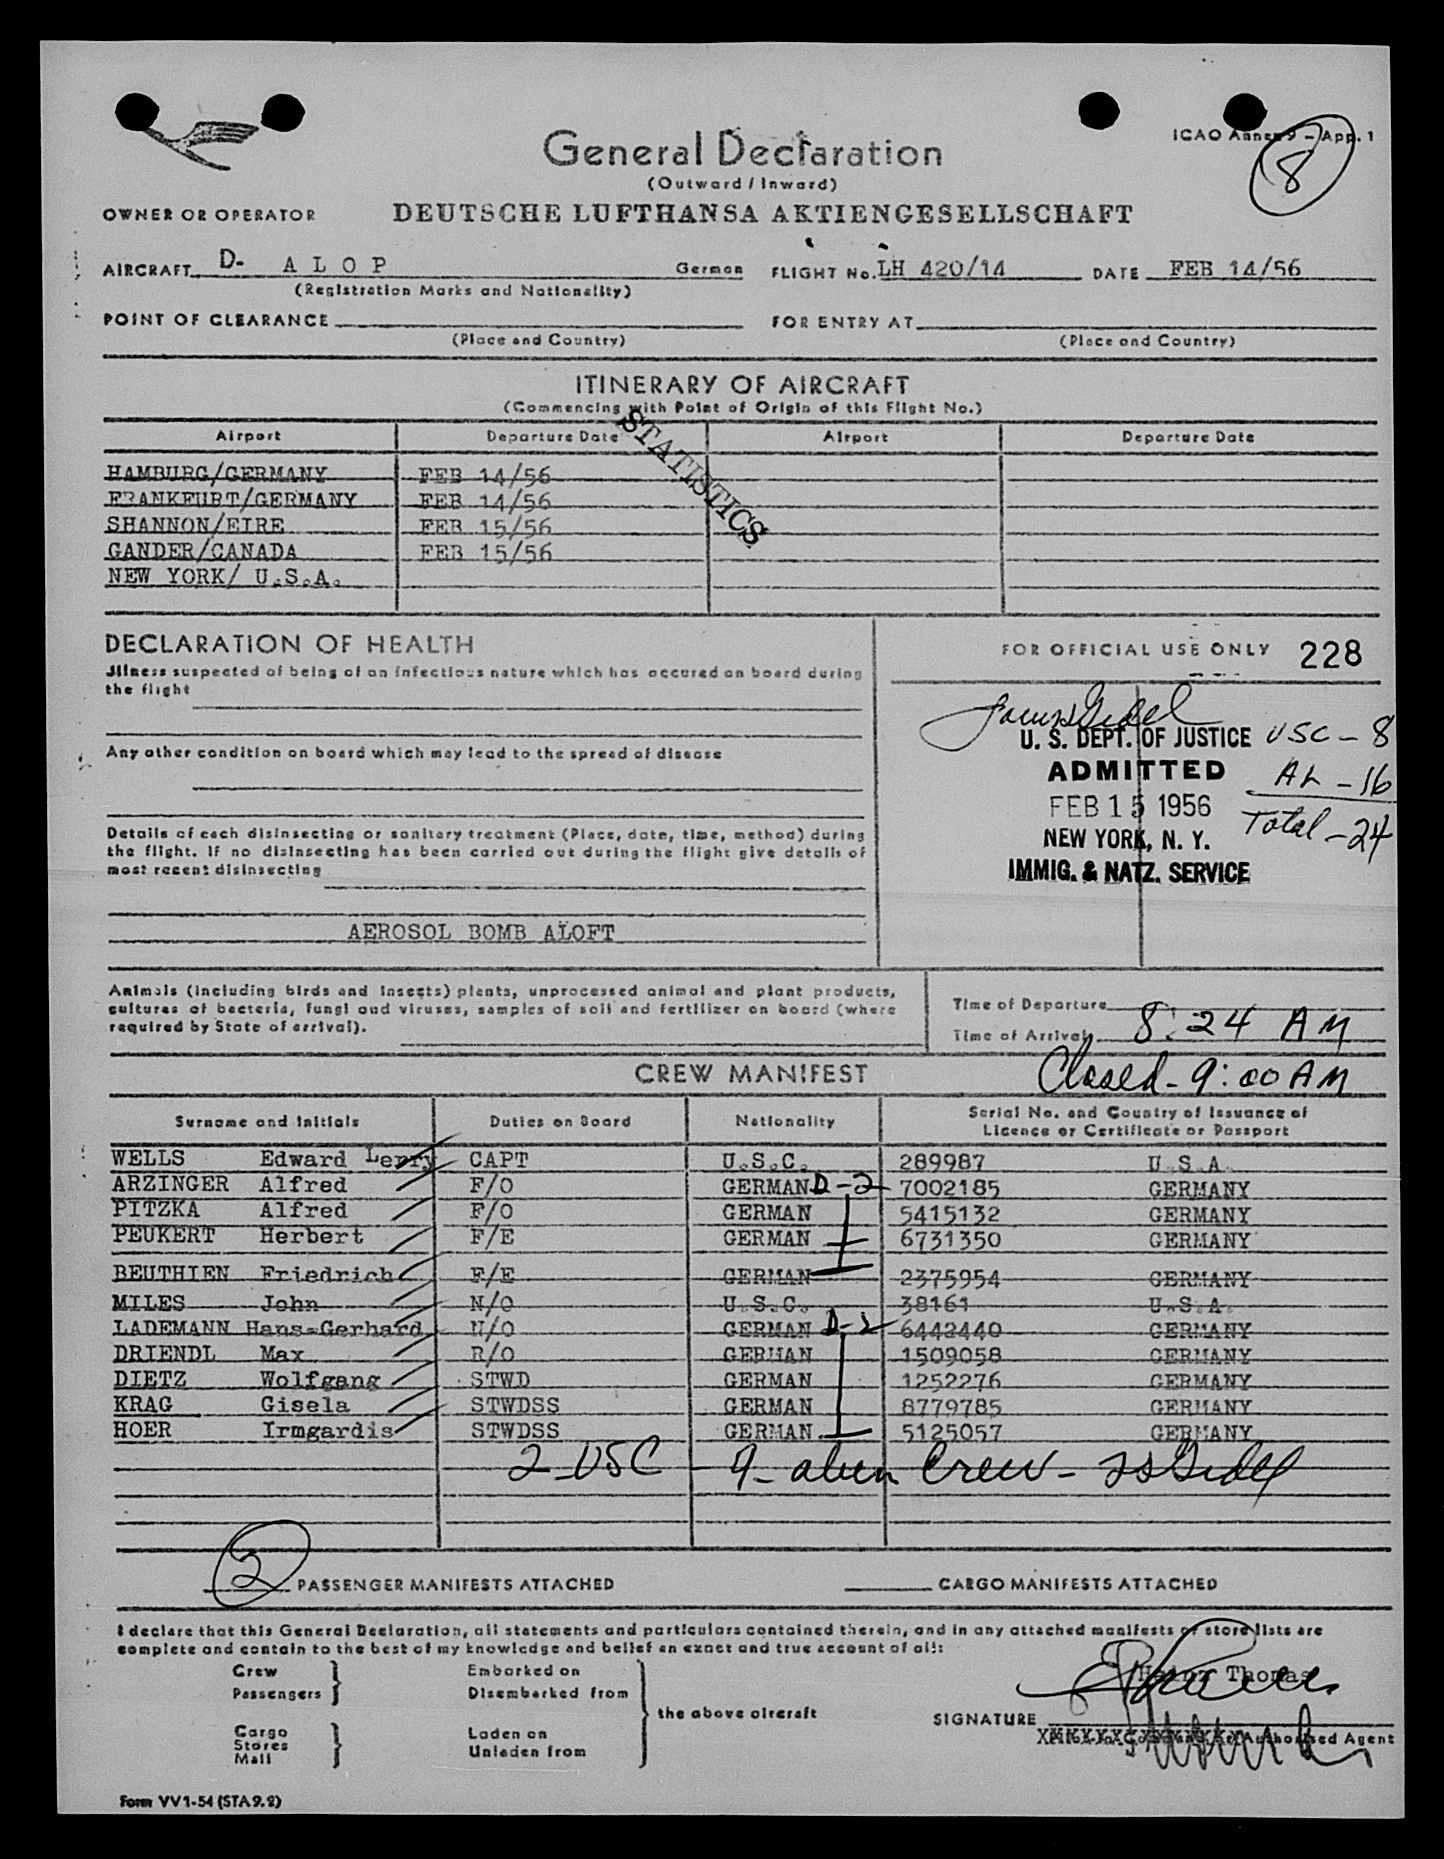 ICAO Annex 9 – App. 1
8
General Declaration
(Outward / Inward)
OWNER OR OPERATOR DEUTSCHE LUFTHANSA AKTIENGESELLSCHAFT
AIRCRAFT D- A L O P German FLIGHT No. LH 420/14 DATE FEB 14/56
(Registration Marks and Nationality)
POINT OF CLEARANCE FOR ENTRY AT
(Place and Country) (Place and Country)
ITINERARY OF AIRCRAFT
(Commencing with Point of Origin of this Flight No.)
STATISTICS
Airport Departure Date Airport Departure Date
HAMBURG/GERMANY FEB 14/56
FRANKFURT/GERMANY FEB 14/56
SHANNON/EIRE FEB 15/56
GANDER/CANADA FEB 15/56
NEW YORK/ U.S.A.
DECLARATION OF HEALTH
Illness suspected of being of an infectious nature which has occured on board during
the flight
Any other condition on board which may lead to the spread of disease
Details of each disinsecting or sanitary treatment (Place, date, time, method) during
the flight. If no disinsecting has been carried out during the flight give details of
most recent disinsecting
AEROSOL BOMB ALOFT
FOR OFFICIAL USE ONLY 228
U. S. DEPT. OF JUSTICE USC – 8
ADMITTED AL – 16
FEB 15 1956 Total – 24
NEW YORK, N. Y.
IMMIG. & NATZ. SERVICE
Animals (including birds and insects) plants, unprocessed animal and plant products,
cultures of bacteria, fungi and viruses, samples of soil and fertilizer on board (where
required by State of arrival).
Time of Departure
Time of Arrival 8:24 AM
Closed - 9:00 AM
CREW MANIFEST
Surname and Initials Duties on Board Nationality Serial No. and Country of Issuance of
Licence or Certificate or Passport
WELLS Edward Lerry CAPT U.S.C. 289987 U.S.A.
ARZINGER Alfred F/O GERMAN D-2 7002185 GERMANY
PITZKA Alfred F/O GERMAN 5415132 GERMANY
PEUKERT Herbert F/E GERMAN 6731350 GERMANY
BEUTHIEN Friedrich F/E GERMAN 2375954 GERMANY
MILES John N/O U.S.C. 38161 U.S.A.
LADEMANN Hans-Gerhard N/O GERMAN D-2 6442440 GERMANY
DRIENDL Max R/O GERMAN 1509058 GERMANY
DIETZ Wolfgang STWD GERMAN 1252276 GERMANY
KRAG Gisela STWDSS GERMAN 8779785 GERMANY
HOER Irmgardis STWDSS GERMAN 5125057 GERMANY
2 USC – 9 – alien Crew –
2 PASSENGER MANIFESTS ATTACHED CARGO MANIFESTS ATTACHED
I declare that this General Declaration, all statements and particulars contained therein, and in any attached manifests or store lists are
complete and contain to the best of my knowledge and belief an exact and true account of all:
Crew Embarked on
Passengers Disembarked from
the above aircraft
Cargo Laden on
Stores Unladen from
Mail
Heinz Thomas
SIGNATURE
Authorised Agent
Form VV1-54 (STA 9.2)